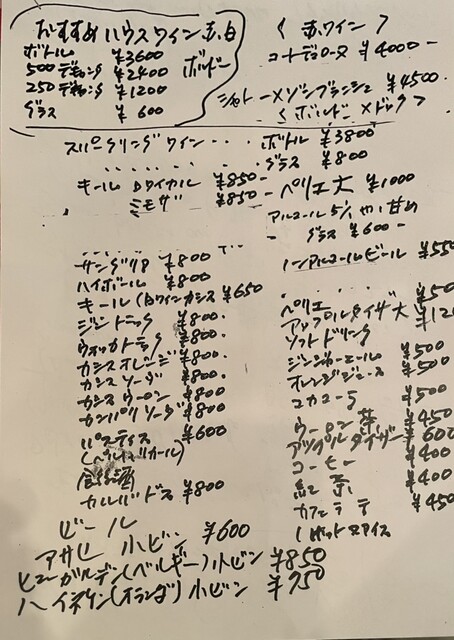 おすすめ ハウスワイン 赤白
ボトル ¥3600
500 デキャンタ ¥2400 ボルドー
250 デキャンタ ¥1200
グラス ¥600
〈赤ワイン〉
コートデュローヌ ¥4000-
シャトーメゾンブランシュ ¥4500
〈ボルドーメドック〉
スパークリングワイン... ボトル ¥3800
グラス ¥800
キールロワイヤル ¥850-
ミモザ ¥850-
ペリエ大 ¥1000
アルコール 5% やや甘め
グラス ¥600-
ノンアルコールビール ¥550
サングリア ¥800
ハイボール ¥800
キール(白ワインカシス ¥650
ジントニック ¥800.
ウォッカトニック ¥800.
カシスオレンジ ¥800.
カシスソーダ ¥800.
カシスウーロン ¥800
カンパリソーダ ¥800
パスティス ¥600
(ペルノリカール)
食後酒
カルバドス ¥800
ペリエ ¥50
アップルタイザー大 ¥12
ソフトドリンク
ジンジャーエール ¥500
オレンジジュース ¥500
コカコーラ ¥500
ウーロン茶 ¥450
アップルタイザー ¥600
コーヒー ¥400
紅茶 ¥400
カフェラテ ¥450
(ホットorアイス
ビール
アサヒ 小ビン ¥600
ヒューガルデン(ベルギー)小ビン ¥850
ハイネケン(オランダ)小ビン ¥750